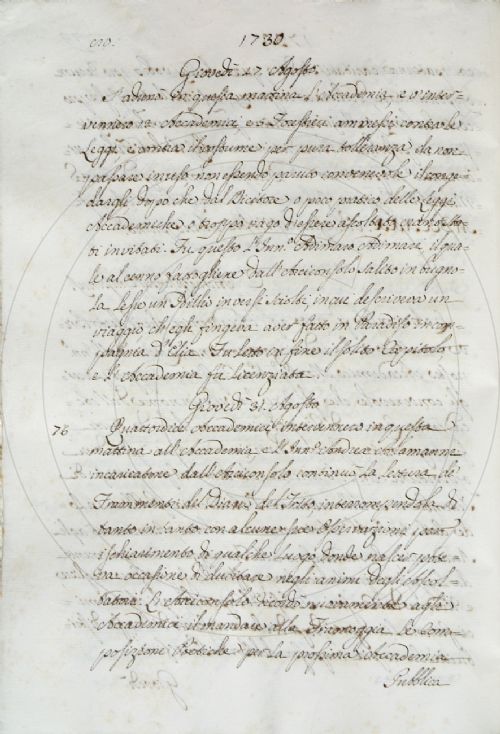 1730.
Giovedì 17. Agosto.
S'adunò in questa mattina l'Accademia, e v'inter-
vennero 12 Accademici e 5 Forestieri ammessi contra le
Leggi e contra il costume per pura tolleranza da non
passare in uso non essendo paruto convenevole il conge-
dargli dopo che dal Bidello o poco pratico delle Leggi
Accademiche o troppo vago d'essere ascoltato erano sta-
ti invitati. Fu questo l'Inn.
le al cenno fattogliene dall'Arciconsolo salito in bugno-
la lesse un in versi sciolti, in cui descrivevasi un
viaggio ch'egli fingeva aver fatto in Paradiso in com-
pagnia d'Elia. Fu letto in fine il solito Capitolo
e l'Accademia fu licenziata.
Giovedì 31. Agosto
76 Quattordici Accademici intervennero in questa
mattina all'Accademia e l'Inn.° Andrea Alamanni
incaricatone dall'Arciconsolo continuò la lettura de'
Frammenti del Diario del interrompendola di
tanto in tanto con alcune sue Osservazioni per
ischiarimento di qualche luogo donde nascer pote-
va occasione di dubitare negli animi degli ascol-
tatori. L'Arciconsolo ricordò nuovamente agli
Accademici il mandare alla Tramoggia le Com-
posizioni Poetiche per la prossima Accademia
Pubblica